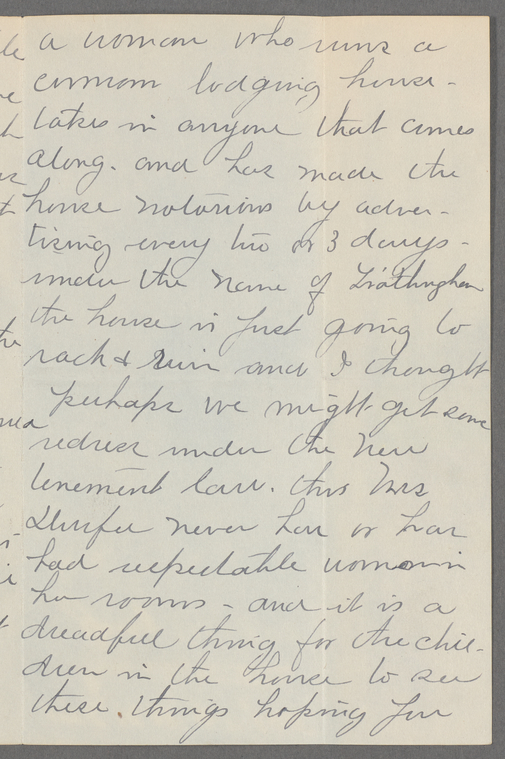 a woman who runs a
common lodging house -
takes in anyone that comes
along. and has made the
house notorious by adver-
tising every two or 3 days -
under the name of
the house is just going to
rack & ruin and I thought
perhaps we might get some
redress under the new
tenement law. this Mrs
never has or has
had respectable women in
her rooms - and it is a
dreadful thing for the chil-
dren in the house to see
these things hoping you